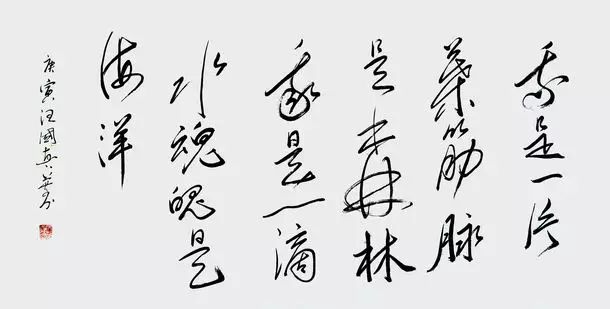 我是一片
葉筋脉
是森林
我是一滴
水魂魄是
海洋
庚寅汪國真